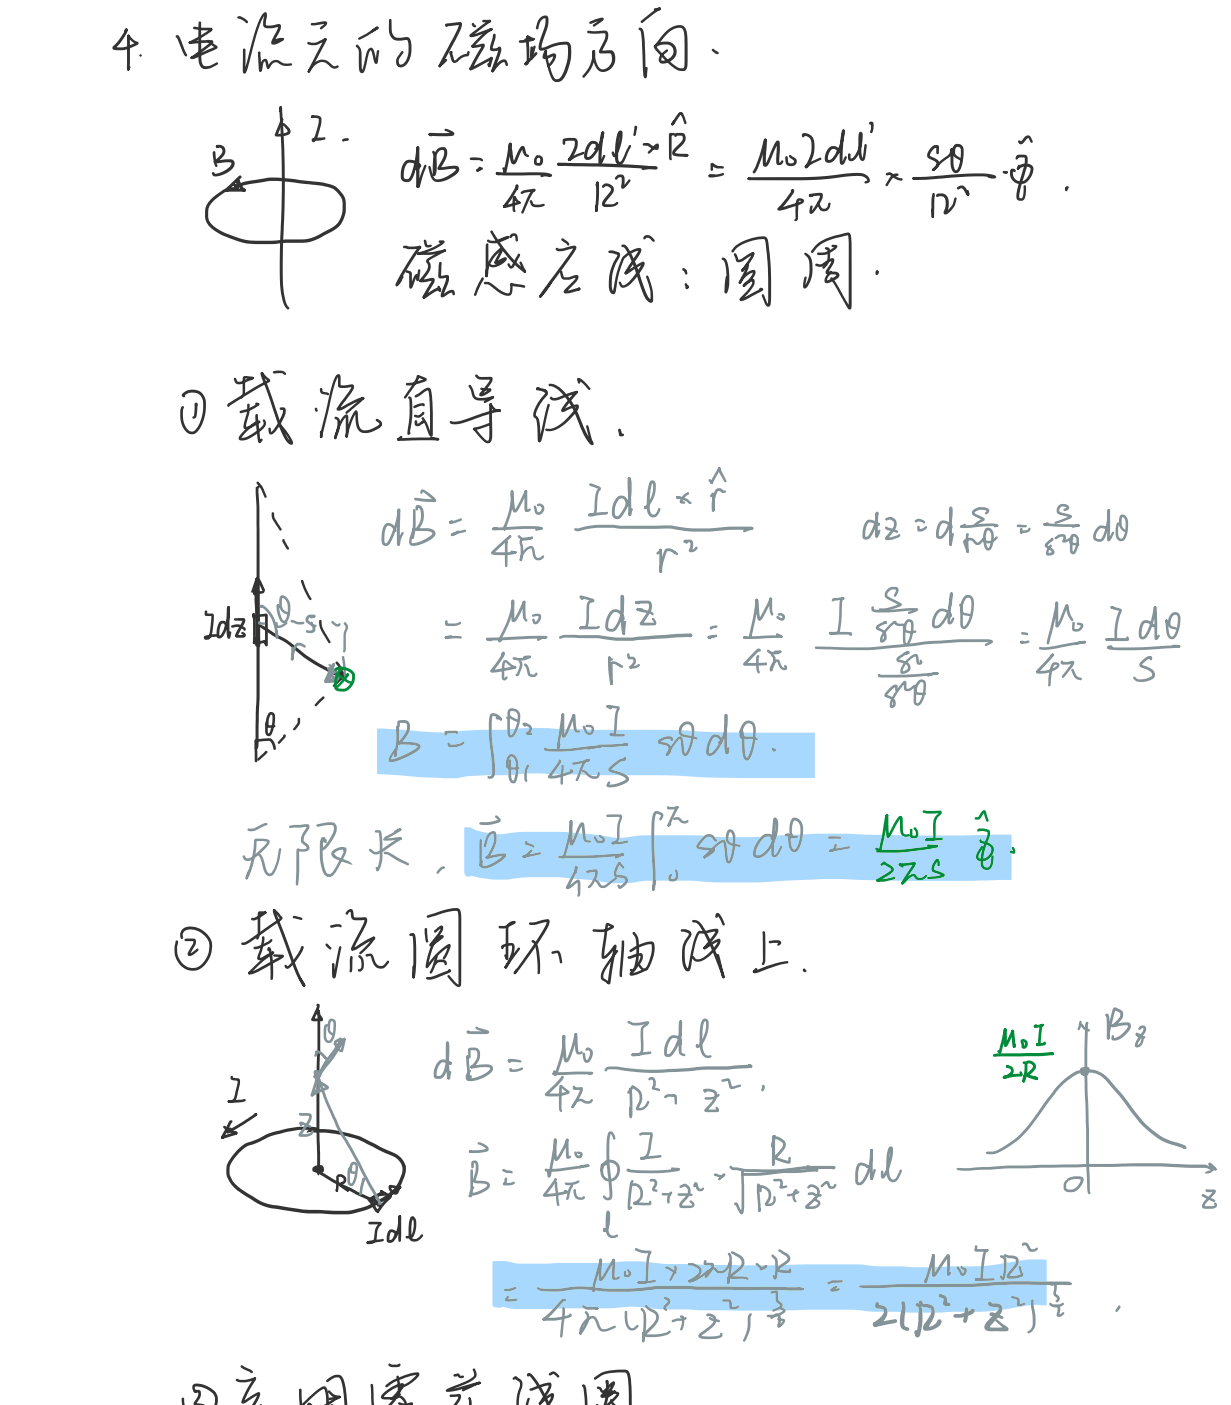 4. 电流元的磁场方向.
I.
B
dB⃗ = μ₀/4π Idl'×R̂/R² = μ₀Idl'/4π × sθ/R² · φ̂ .
磁感应线：圆周.
① 载流直导线.
dB⃗ = μ₀/4π Idl×r̂/r²
dz = d s/rθ = s/s²θ dθ
Idz
θ
s
r
= μ₀/4π Idz/r² = μ₀/4π I s/s²θ dθ / s²/s²θ = μ₀/4π Idθ/s
θ
B = ∫θ₁^θ₂ μ₀I/4πs sθdθ.
无限长. B⃗ = μ₀I/4πs ∫₀^π sθdθ = μ₀I/2πs φ̂.
② 载流圆环轴线上.
θ
I
z
R
θ
r
Idl
dB⃗ = μ₀/4π Idl/R²+z² .
μ₀I/2R
B_z
O
z
B⃗ = μ₀/4π ∮_l I/R²+z² · R/√R²+z² dl
= μ₀I×2πR·R/4π(R²+z²)^3/2 = μ₀IR²/2(R²+z²)^3/2 .